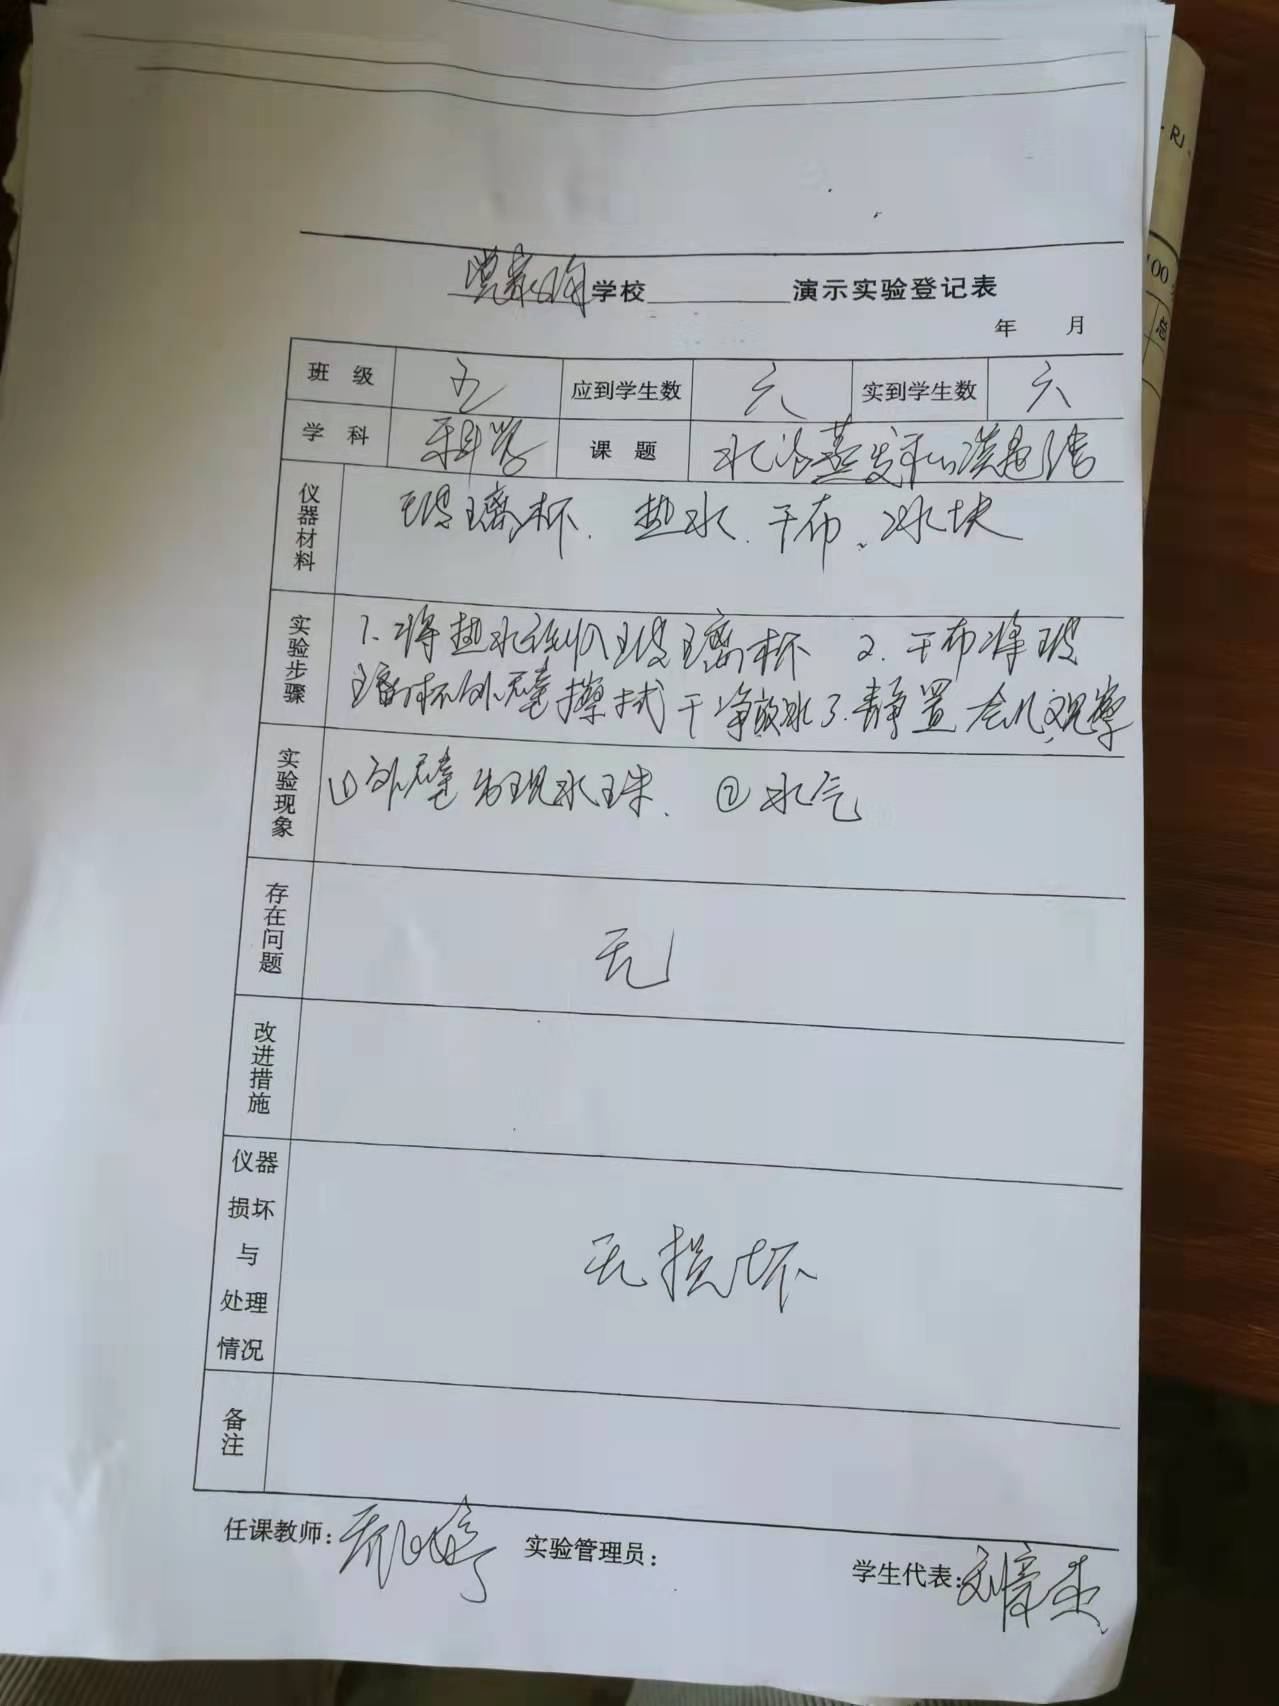 · RJ ·
100
学校 演示实验登记表
年 月
班 级 五 应到学生数 六 实到学生数 六
学 科 科学 课 题 水 蒸发和凝
仪器材料 玻璃杯、热水、干布、冰块
实验步骤 1、将热水 入玻璃杯 2. 干布将玻
璃杯外壁擦拭干净放冰 3. 静置 会儿观察
实验现象 ①外壁 现水珠、 ②水气
存在问题 无
改进措施
仪器损坏与处理情况 无损坏
备注
任课教师: 实验管理员: 学生代表:刘